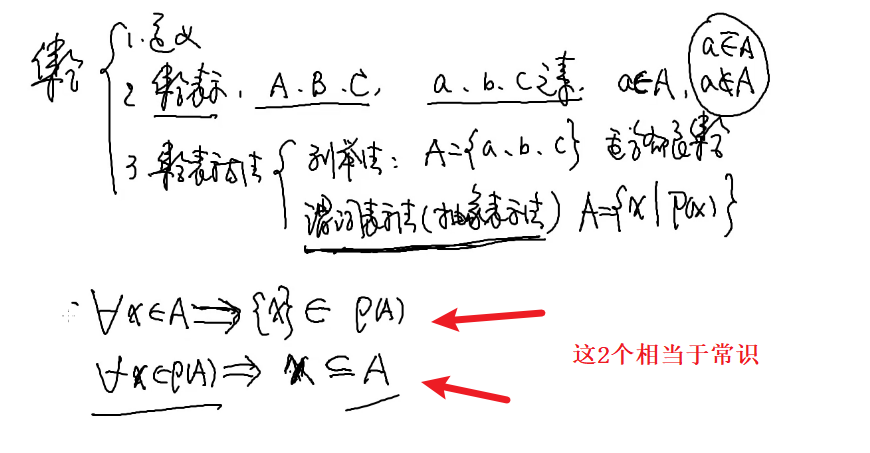 集合
1.定义
2 集合表示, A、B、C, a、b、c元素, a∈A,
a∈̅A
a∉A
3 集合表示方法
列举法: A={a、b、c}
谓词表示法(抽象表示法) A={x|P(x)}
∀x∈A⇒{x}∈ρ(A)
∀x∈ρ(A)⇒ x⊆A
这2个相当于常识